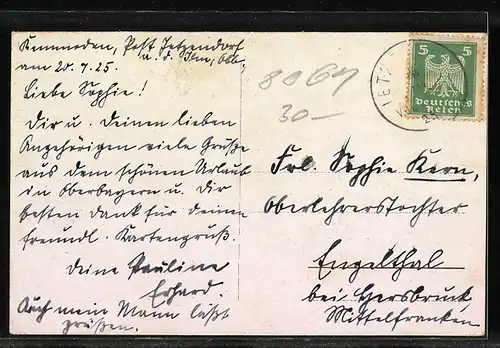 Kemmoden, Post Jetzendorf
a. d. Ilm, Obb.,
am 20.7.25.
Liebe Sophie!
Dir u. Deinen lieben
Angehörigen viele Grüße
aus dem schönen Urlaub
in Oberbayern u. Dir
besten Dank für Deinen
freundl. Kartengruß.
Deine Pauline
Erhard.
Auch mein Mann läßt
grüßen.
8067
30-
5 5
Deutsches
Reich
JETZ
Frl. Sophie Kern,
Oberlehrerstochter
Engelthal
bei Hersbruck,
Mittelfranken